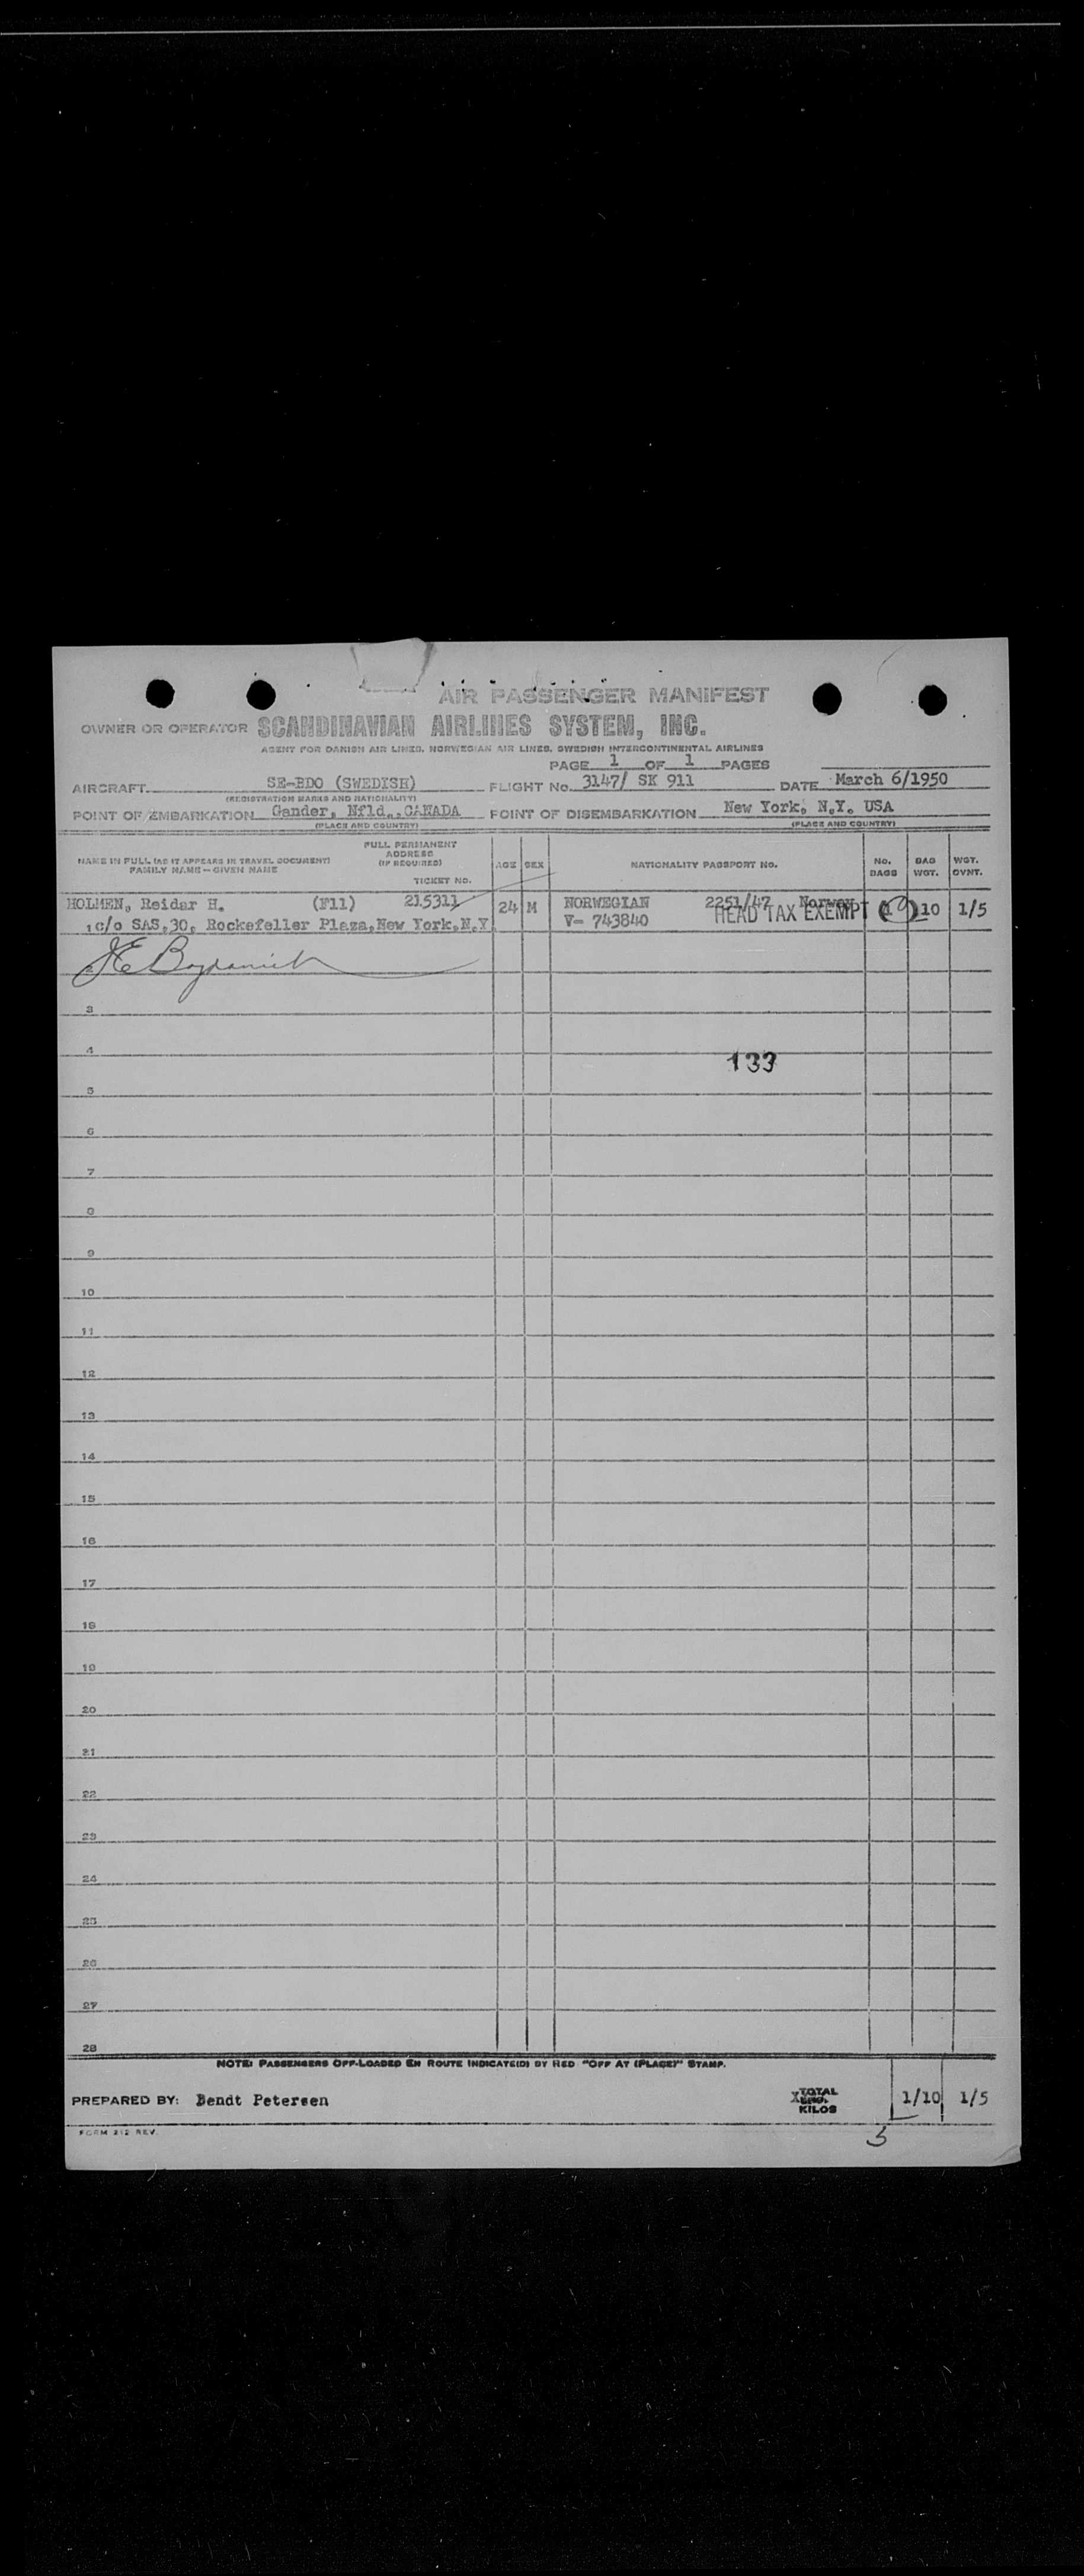 AIR PASSENGER MANIFEST
OWNER OR OPERATOR SCANDINAVIAN AIRLINES SYSTEM, INC.
AGENT FOR DANISH AIR LINES, NORWEGIAN AIR LINES, SWEDISH INTERCONTINENTAL AIRLINES
PAGE 1 OF 1 PAGES
AIRCRAFT SE-BDO (SWEDISH) FLIGHT No. 3147/ SK 911 DATE March 6/1950
(REGISTRATION MARKS AND NATIONALITY)
POINT OF EMBARKATION Gander, Nfld., CANADA POINT OF DISEMBARKATION New York, N.Y. USA
(PLACE AND COUNTRY) (PLACE AND COUNTRY)
NAME IN FULL (AS IT APPEARS IN TRAVEL DOCUMENT) FAMILY NAME - GIVEN NAME FULL PERMANENT ADDRESS (IF REQUIRED) TICKET NO. AGE SEX NATIONALITY PASSPORT NO. NO. BAGS BAG WGT. WGT. OVNT.
HOLMEN, Reidar H. (F11) 215311 24 M NORWEGIAN 2251/47 Norway 1 10 1/5
1 c/o SAS, 30, Rockefeller Plaza, New York, N.Y. V- 743840 HEAD TAX EXEMPT
3
4
133
5
6
7
8
9
10
11
12
13
14
15
16
17
18
19
20
21
22
23
24
25
26
27
28
NOTE: PASSENGERS OFF-LOADED EN ROUTE INDICATE(D) BY RED "OFF AT (PLACE)" STAMP.
PREPARED BY: Bendt Petersen TOTAL KILOS 1/10 1/5
FORM 212 REV.
5